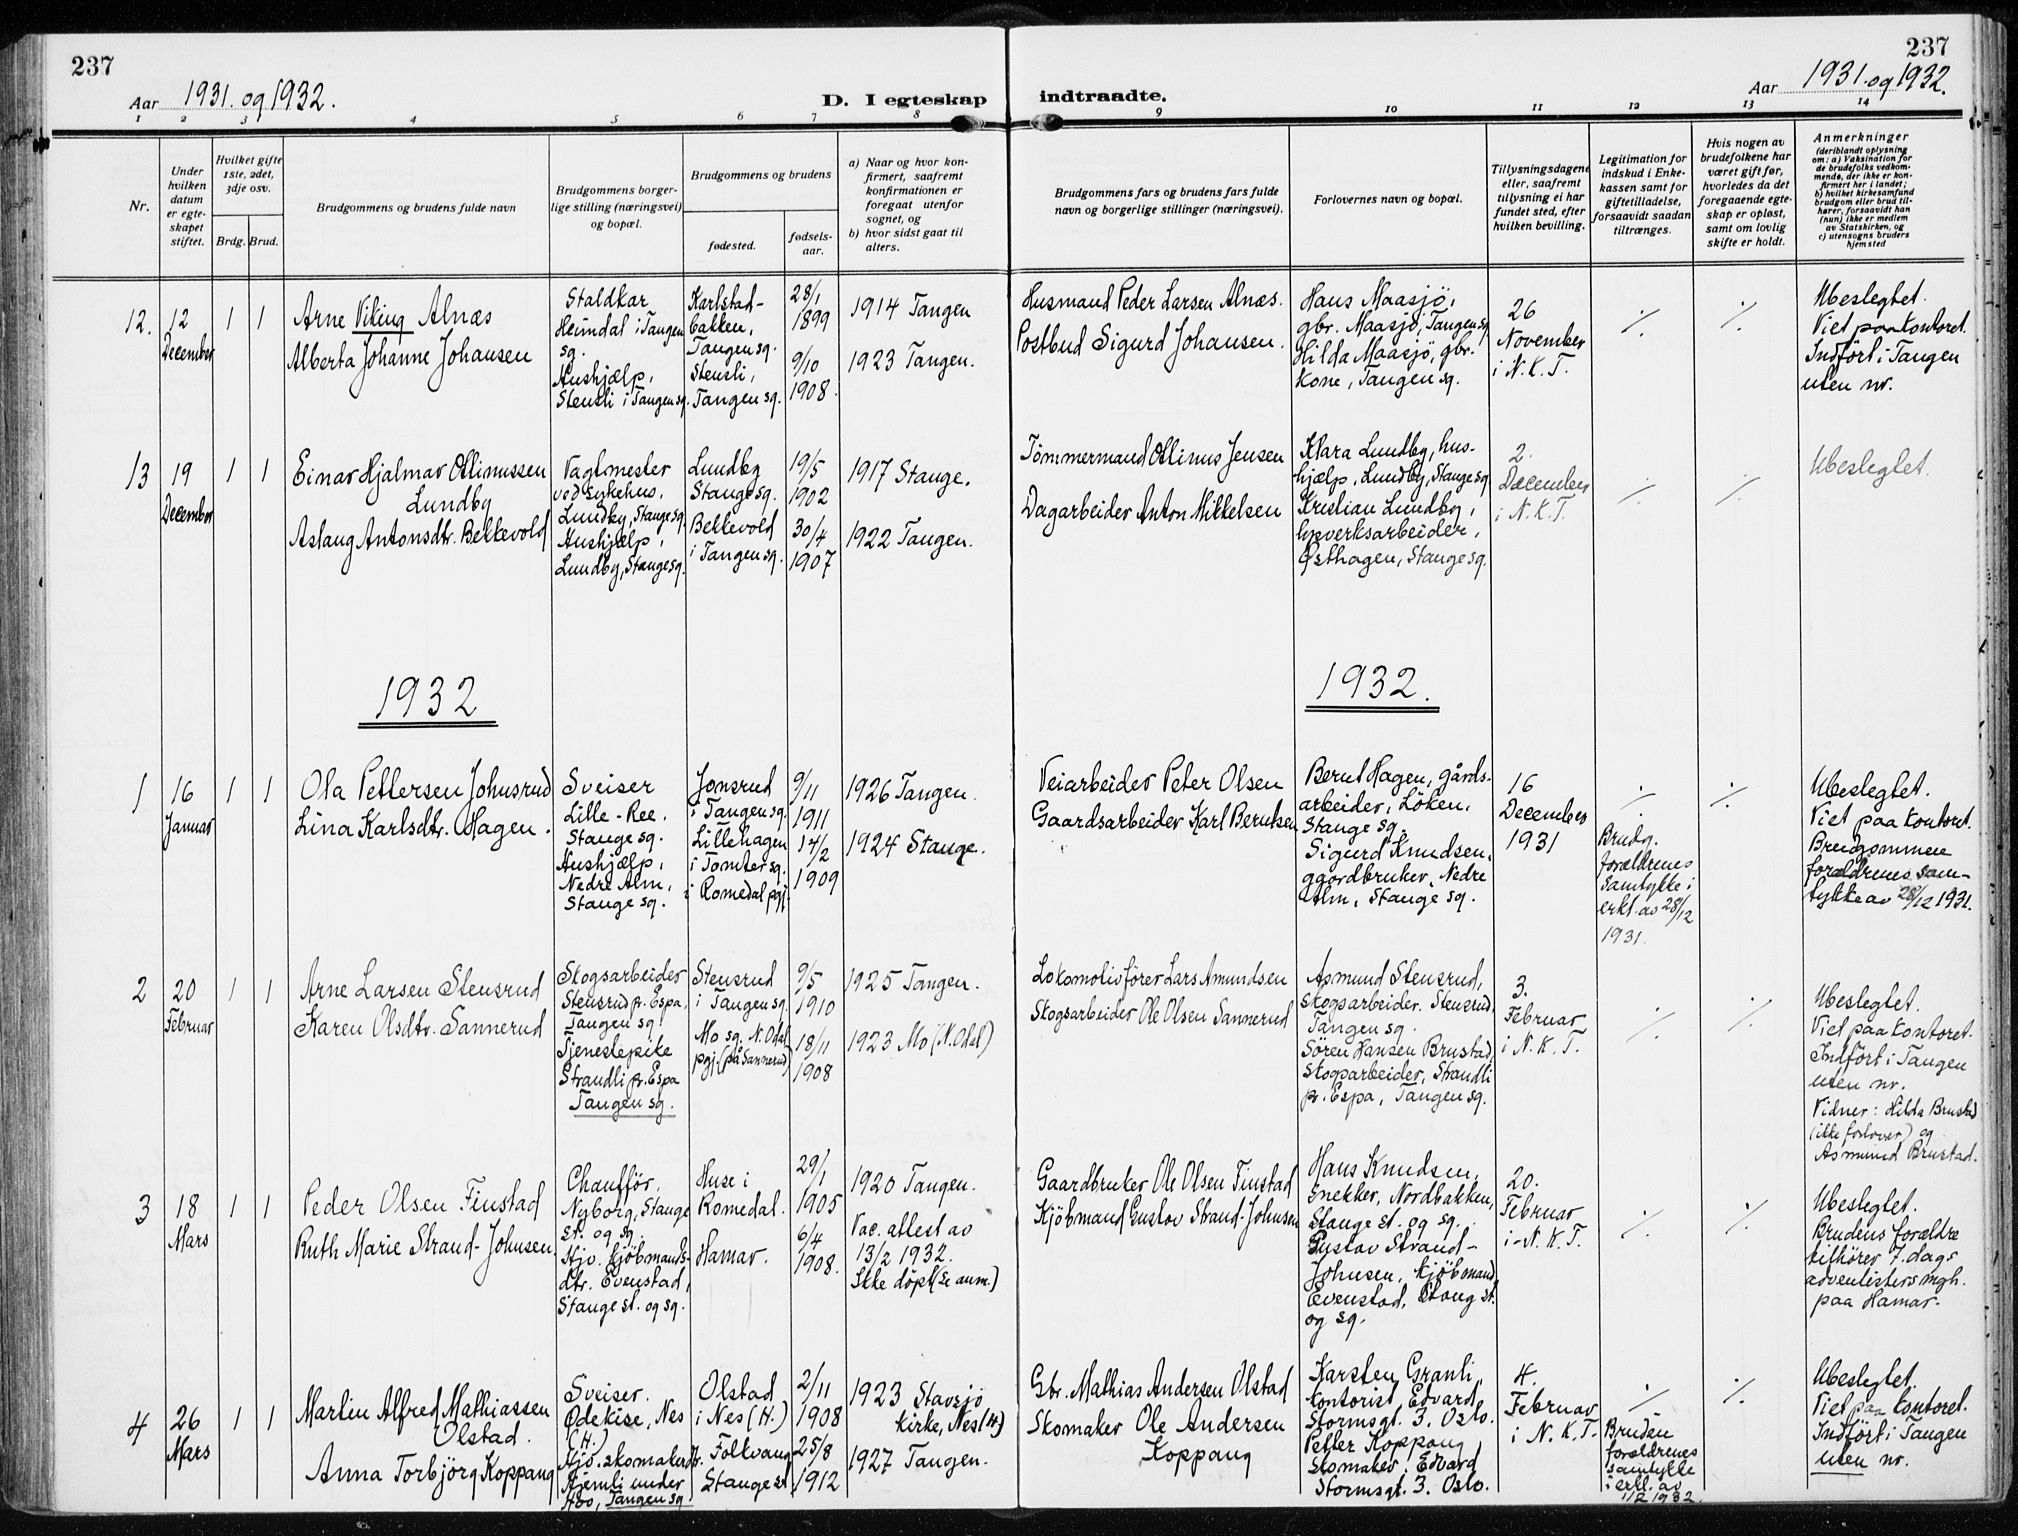 237
Aar 1931. og 1932.
D. I egteskap
indtraadte.
237
Aar 1931. og 1932.
1 2 3 4 5 6 7 8 9 10 11 12 13 14
Nr.
Under hvilken datum er egteskapet stiftet.
Hvilket gifte 1ste, 2det, 3dje osv.
Brdg. Brud.
Brudgommens og brudens fulde navn
Brudgommens borgerlige stilling (næringsvei) og bopæl.
Brudgommens og brudens
fødested.
fødselsaar.
a) Naar og hvor konfirmert, saafremt konfirmationen er foregaat utenfor sognet, og
b) hvor sidst gaat til alters.
Brudgommens fars og brudens fars fulde navn og borgerlige stillinger (næringsvei).
Forlovernes navn og bopæl.
Tillysningsdagene eller, saafremt tillysning ei har fundet sted, efter hvilken bevilling.
Legitimation for indskud i Enkekassen samt for giftetilladelse, forsaavidt saadan tiltrænges.
Hvis nogen av brudefolkene har været gift før, hvorledes da det foregaaende egteskap er opløst, samt om lovlig skifte er holdt.
Anmerkninger (deriblandt oplysning om: a) Vaksination for de brudefolks vedkommende, der ikke er konfirmert her i landet; b) hvilket kirkesamfund brudgom eller brud tilhører, forsaavidt han (hun) ikke er medlem av Statskirken, og c) utensogns bruders hjemsted
12. 12 December
1 1
Arne Viking Alnæs
Alberta Johanne Johansen
Staldkar
Heimdal i Tangen
sg.
Hushjælp,
Stensli i Tangen sg.
Karlstad-
bakken,
Tangen sg.
Stensli,
Tangen sg.
28/1
1899
9/10
1908.
1914 Tangen
1923 Tangen.
Husmand Peder Larsen Alnæs.
Postbud Sigurd Johansen.
Hans Maasjö,
gbr. Maasjö, Tangen sg
Hilda Maasjö, gbr.
kone, Tangen sg.
26
November
i N.K.T.
./. ./.
Ubeslegtet.
Viet paa kontoret.
Indført i Tangen
uten nr.
13 19 December
1 1
Einar Hjalmar Ollinussen
Lundby
Aslaug Antonsdtr. Bekkevold
Vagtmester
ved sykehus,
Lundby, Stange sg.
Hushjælp,
Lundby, Stange sg.
Lundby
Stange sg.
Bekkevold
i Tangen sg.
19/5
1902
30/4
1907
1917 Stange.
1922 Tangen.
Tömmermand Ollinus Jensen
Dagarbeider Anton Mikkelsen
Klara Lundby, hus-
hjælp, Lundby, Stange sg
Kristian Lundby,
lysverksarbeider,
Østhagen, Stange sg.
2.
December
i N.K.T.
./. ./.
Ubeslegtet.
1932
1932.
1 16 Januar
1 1
Ola Pettersen Johnsrud
Lina Karlsdtr. Hagen.
Sveiser
Lille-Ree.
Stange sg.
Hushjælp,
Nedre Alm,
Stange sg.
Jonsrud
i Tangen sg.
Lillehagen
i Tomter sg.
i Romedal pgj.
9/11
1911
14/2
1909
1926 Tangen.
1924 Stange.
Veiarbeider Peter Olsen
Gaardsarbeider Karl Berntsen
Bernt Hagen, gårds-
arbeider, Löken,
Stange sg.
Sigurd Knudsen,
gaardbruker, Nedre
Alm, Stange sg.
16
December
1931
./. ./.
Brudg.
forældrenes
samtykke i
erkl. av 28/12
1931.
Ubeslegtet.
Viet paa kontoret.
Brudgommens
forældrenes sam-
tykke av 28/12 1931.
2 20 Februar
1 1
Arne Larsen Stensrud
Karen Olsdtr. Sannerud
Skogsarbeider
Stensrud pr. Espa,
Tangen sg.
Tjenestepike
Strandli pr. Espa
Tangen sg.
Stensrud
i Tangen sg.
Mo sg. N. Odal
pgj. (på Sannerud)
9/5
1910
18/11
1908
1925 Tangen.
1923 Mo (N. Odal)
Lokomotivförer Lars Amundsen
Skogsarbeider Ole Olsen Sannerud
Asmund Stensrud,
skogsarbeider. Stensrud,
Tangen sg.
Sören Hansen Brustad,
skogsarbeider, Strandli
pr. Espa, Tangen sg.
3.
Februar
i N.K.T.
./. ./.
Ubeslegtet.
Viet paa kontoret.
Indført i Tangen
uten nr.
Vidner: Hilda Brustad
(ikke forlover) og
Asmund Brustad.
3 18 Mars
1 1
Peder Olsen Finstad
Ruth Marie Strand-Johnsen
Chauffør.
Nyborg, Stange
st. og sg.
Hjv. kjöbmands-
dtr. Evenstad,
Stange st. og sg.
Huse i
Romedal.
Hamar.
29/1
1905
6/4
1908.
1920 Tangen.
Vac. attest av
13/2 1932.
Ikke döpt (se anm.)
Gaardbruker Ole Olsen Finstad
Kjöbmand Gustav Strand-Johnsen
Hans Knudsen,
snekker, Nordbakken,
Stange st. og sg.
Gustav Strand-
Johnsen, kjöbmand,
Evenstad, Stang st.
og sg.
20.
Februar
i N.K.T.
./. ./.
Ubeslegtet.
Brudens forældre
tilhörer 7. dags
adventisters mgh.
paa Hamar.
4 26 Mars
1 1
Martin Alfred Mathiassen
Olstad.
Anna Torbjörg Koppang
Sveiser.
Ødekise, Nes
(H.)
Hjv. skomakerdtr.
Hjemli under
Hov, Tangen sg.
Olstad
i Nes (H.)
Folkvang
Stange st
2/11
1908
25/8
1912
1923 Stavsjö
kirke, Nes (H)
1927 Tangen.
Gbr. Mathias Andersen Olstad
Skomaker Ole Andersen
Koppang
Karsten Granli,
kontorist, Edvard
Stormsgt. 3. Oslo.
Petter Koppang
Skomaker, Edvard
Stormsgt. 3. Oslo.
4.
Februar
i N.K.T.
./. ./.
Bruden
forældrenes
samtykke
i erkl. av
1/2 1932.
Ubeslegtet.
Viet paa kontoret.
Indført i Tangen
uten nr.